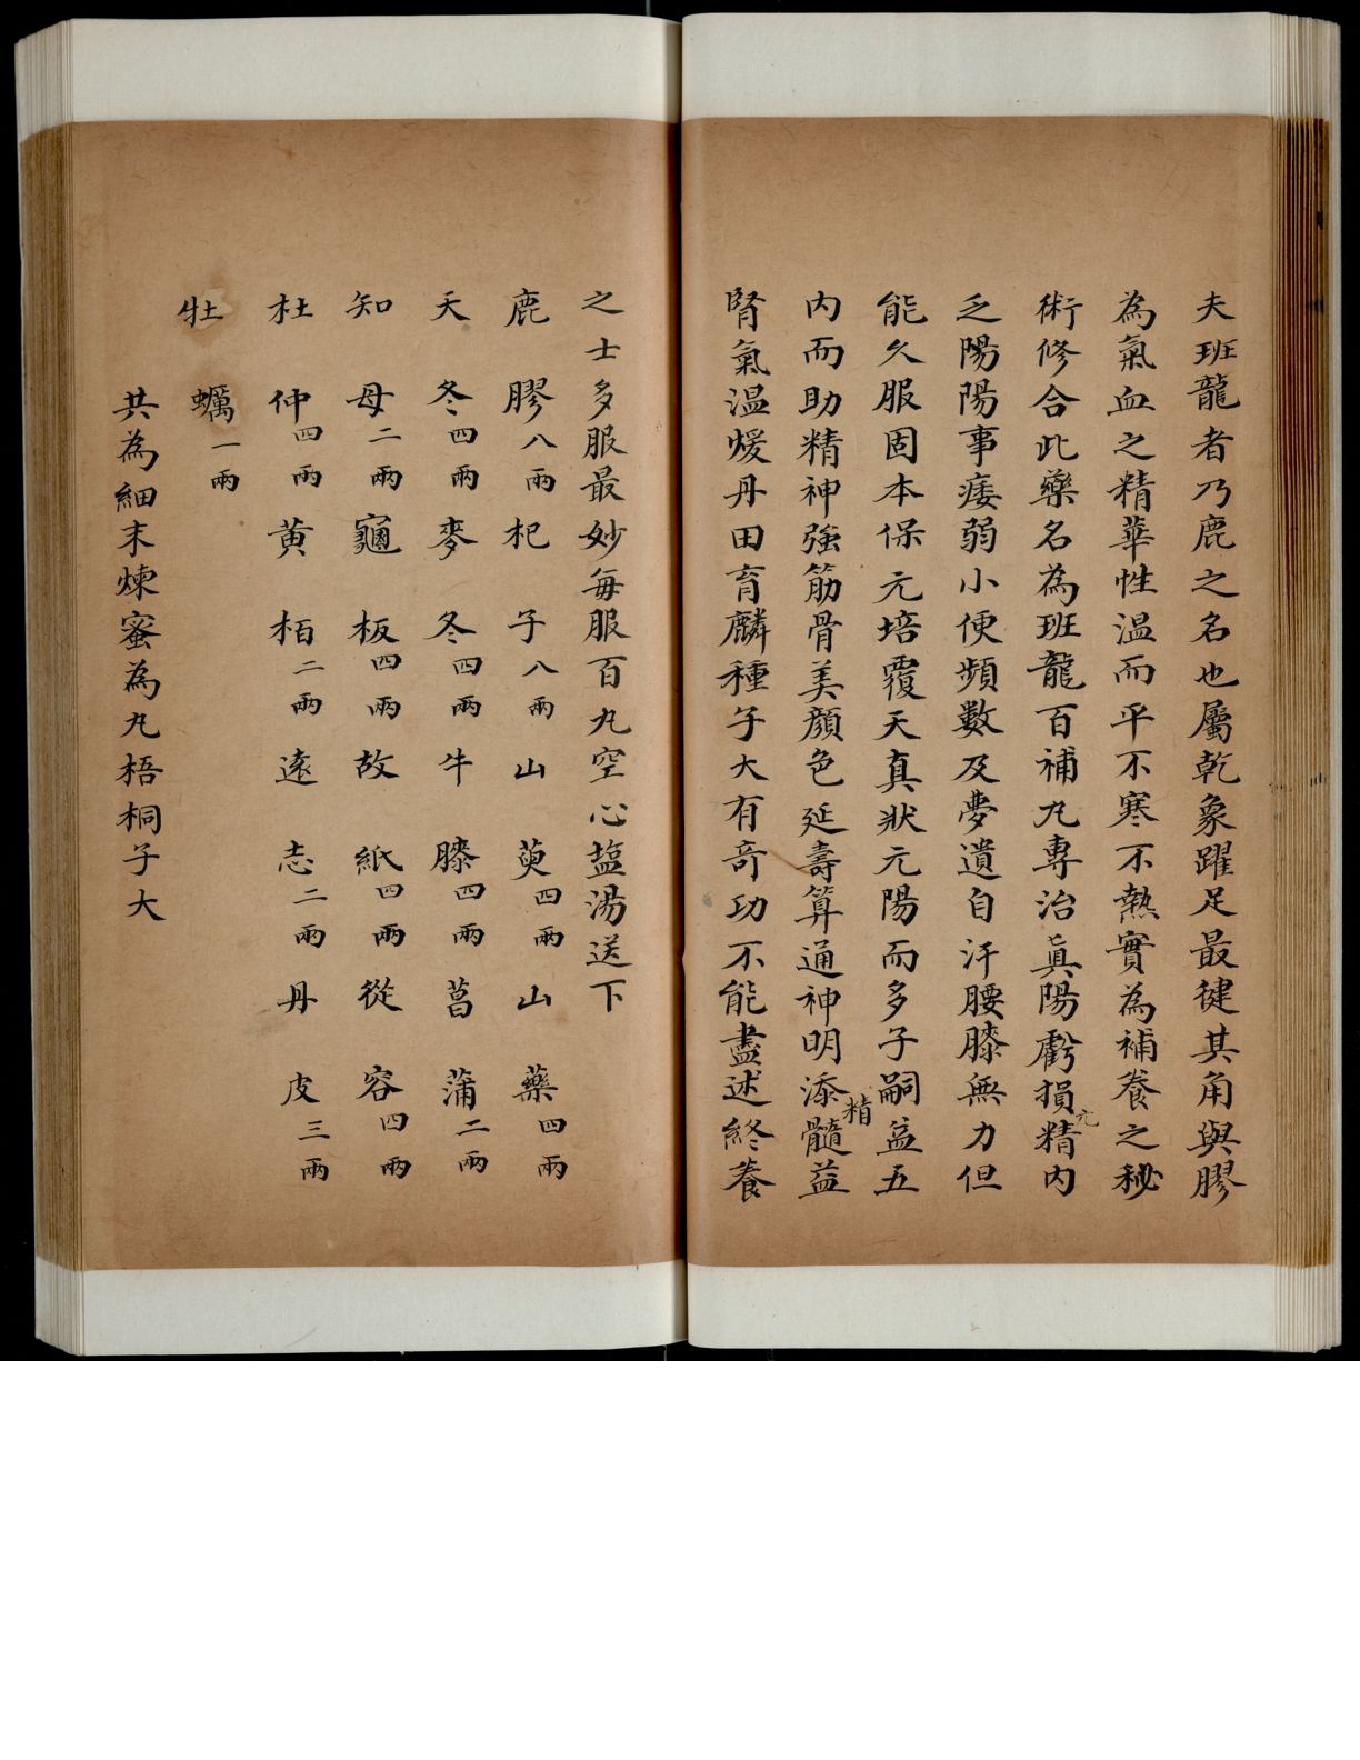 夫班龍者乃鹿之名也屬乾象躍足最健其角與膠
為氣血之精華性溫而平不寒不熱實為補養之秘
術修合此藥名為班龍百補丸專治眞陽虧損精元內
乏陽陽事痿弱小便頻數及夢遺自汗腰膝無力但
能久服固本保元培覆天真狀元陽而多子嗣益五
內而助精神強筋骨美顏色延壽算通神明添精髓益
腎氣溫煖丹田育麟種子大有奇功不能盡述終養
之士多服最妙每服百丸空心塩湯送下
鹿膠八兩 杞子八兩 山萸四兩 山藥四兩
天冬四兩 麥冬四兩 牛膝四兩 菖蒲二兩
知母二兩 龜板四兩 故紙四兩 從容四兩
杜仲四兩 黄栢二兩 遠志二兩 丹皮三兩
牡蠣一兩
共為細末煉蜜為丸梧桐子大